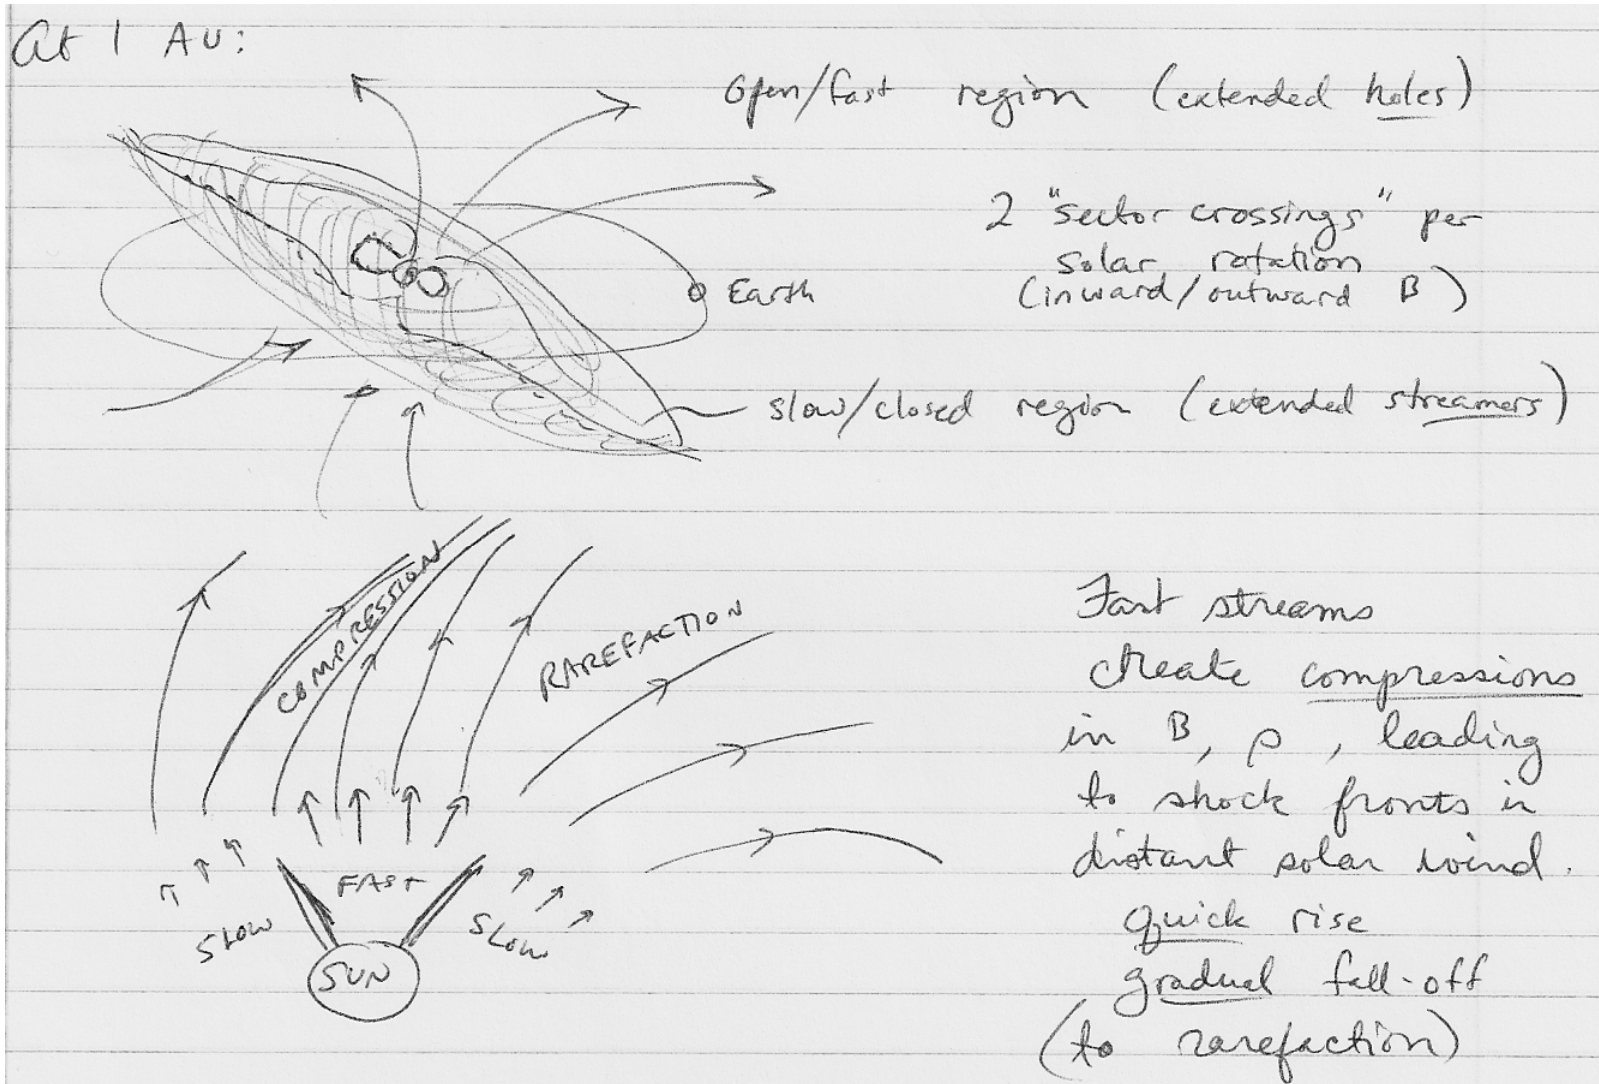 At 1 AU:
Open/fast region (extended holes)
2 "sector crossings" per
solar rotation
(inward/outward B)
Earth
slow/closed region (extended streamers)
COMPRESSION
RAREFACTION
FAST
SLOW
SLOW
SUN
Fast streams
create compressions
in B, ρ, leading
to shock fronts in
distant solar wind.
quick rise
gradual fall-off
(to rarefaction)